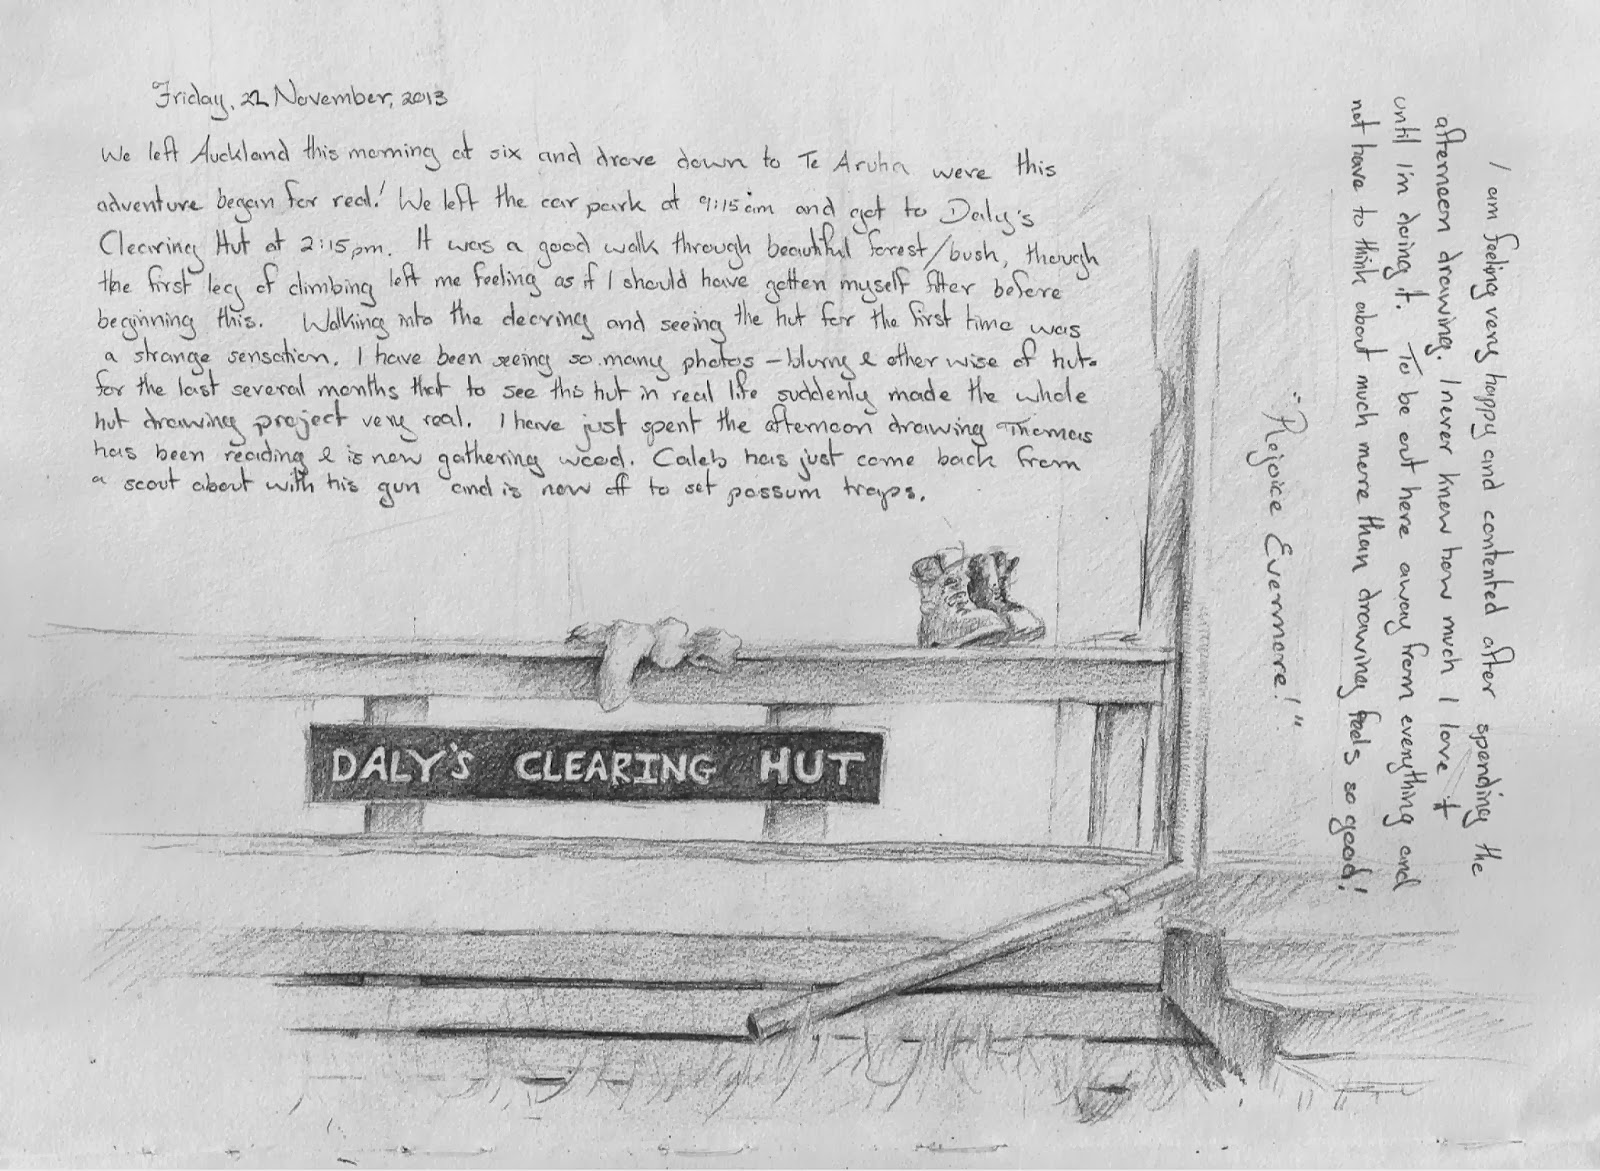 Friday, 22 November, 2013
We left Auckland this morning at six and drove down to Te Aruha were this
adventure began for real! We left the car park at 9:15am and got to Daly's
Clearing Hut at 2:15pm. It was a good walk through beautiful forest/bush, though
the first leg of climbing left me feeling as if I should have gotten myself fitter before
beginning this. Walking into the clearing and seeing the hut for the first time was
a strange sensation. I have been seeing so many photos - blurry & other wise of huts
for the last several months that to see this hut in real life suddenly made the whole
hut drawing project very real. I have just spent the afternoon drawing Thomas
has been reading & is now gathering wood. Caleb has just come back from
a scout about with his gun and is now off to set possum traps.
I am feeling very happy and contented after spending the
afternoon drawing. I never knew how much I love it
until I'm doing it. To be out here away from everything and
not have to think about much more than drawing feels so good!
"Rejoice Evermore!"
DALY'S CLEARING HUT